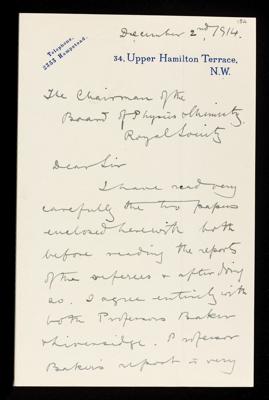 December 2nd, 1914.
Telephone,
2353 Hampstead.
34, Upper Hamilton Terrace,
N.W.
The Chairman of the
Board of Physics & Chemistry.
Royal Society
Dear Sir
I have read very
carefully the two papers
enclosed herewith both
before reading the reports
of the referees & after doing
so. I agree entirely with
both Professors Baker
& Liversidge. Professor
Baker's report is very